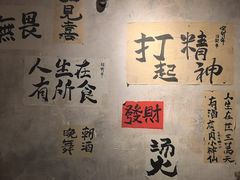 無畏
見喜
打起
精神
人坐在
有所食
發財
朝酒
晚舞
人生在世三萬天
有酒有肉小神仙